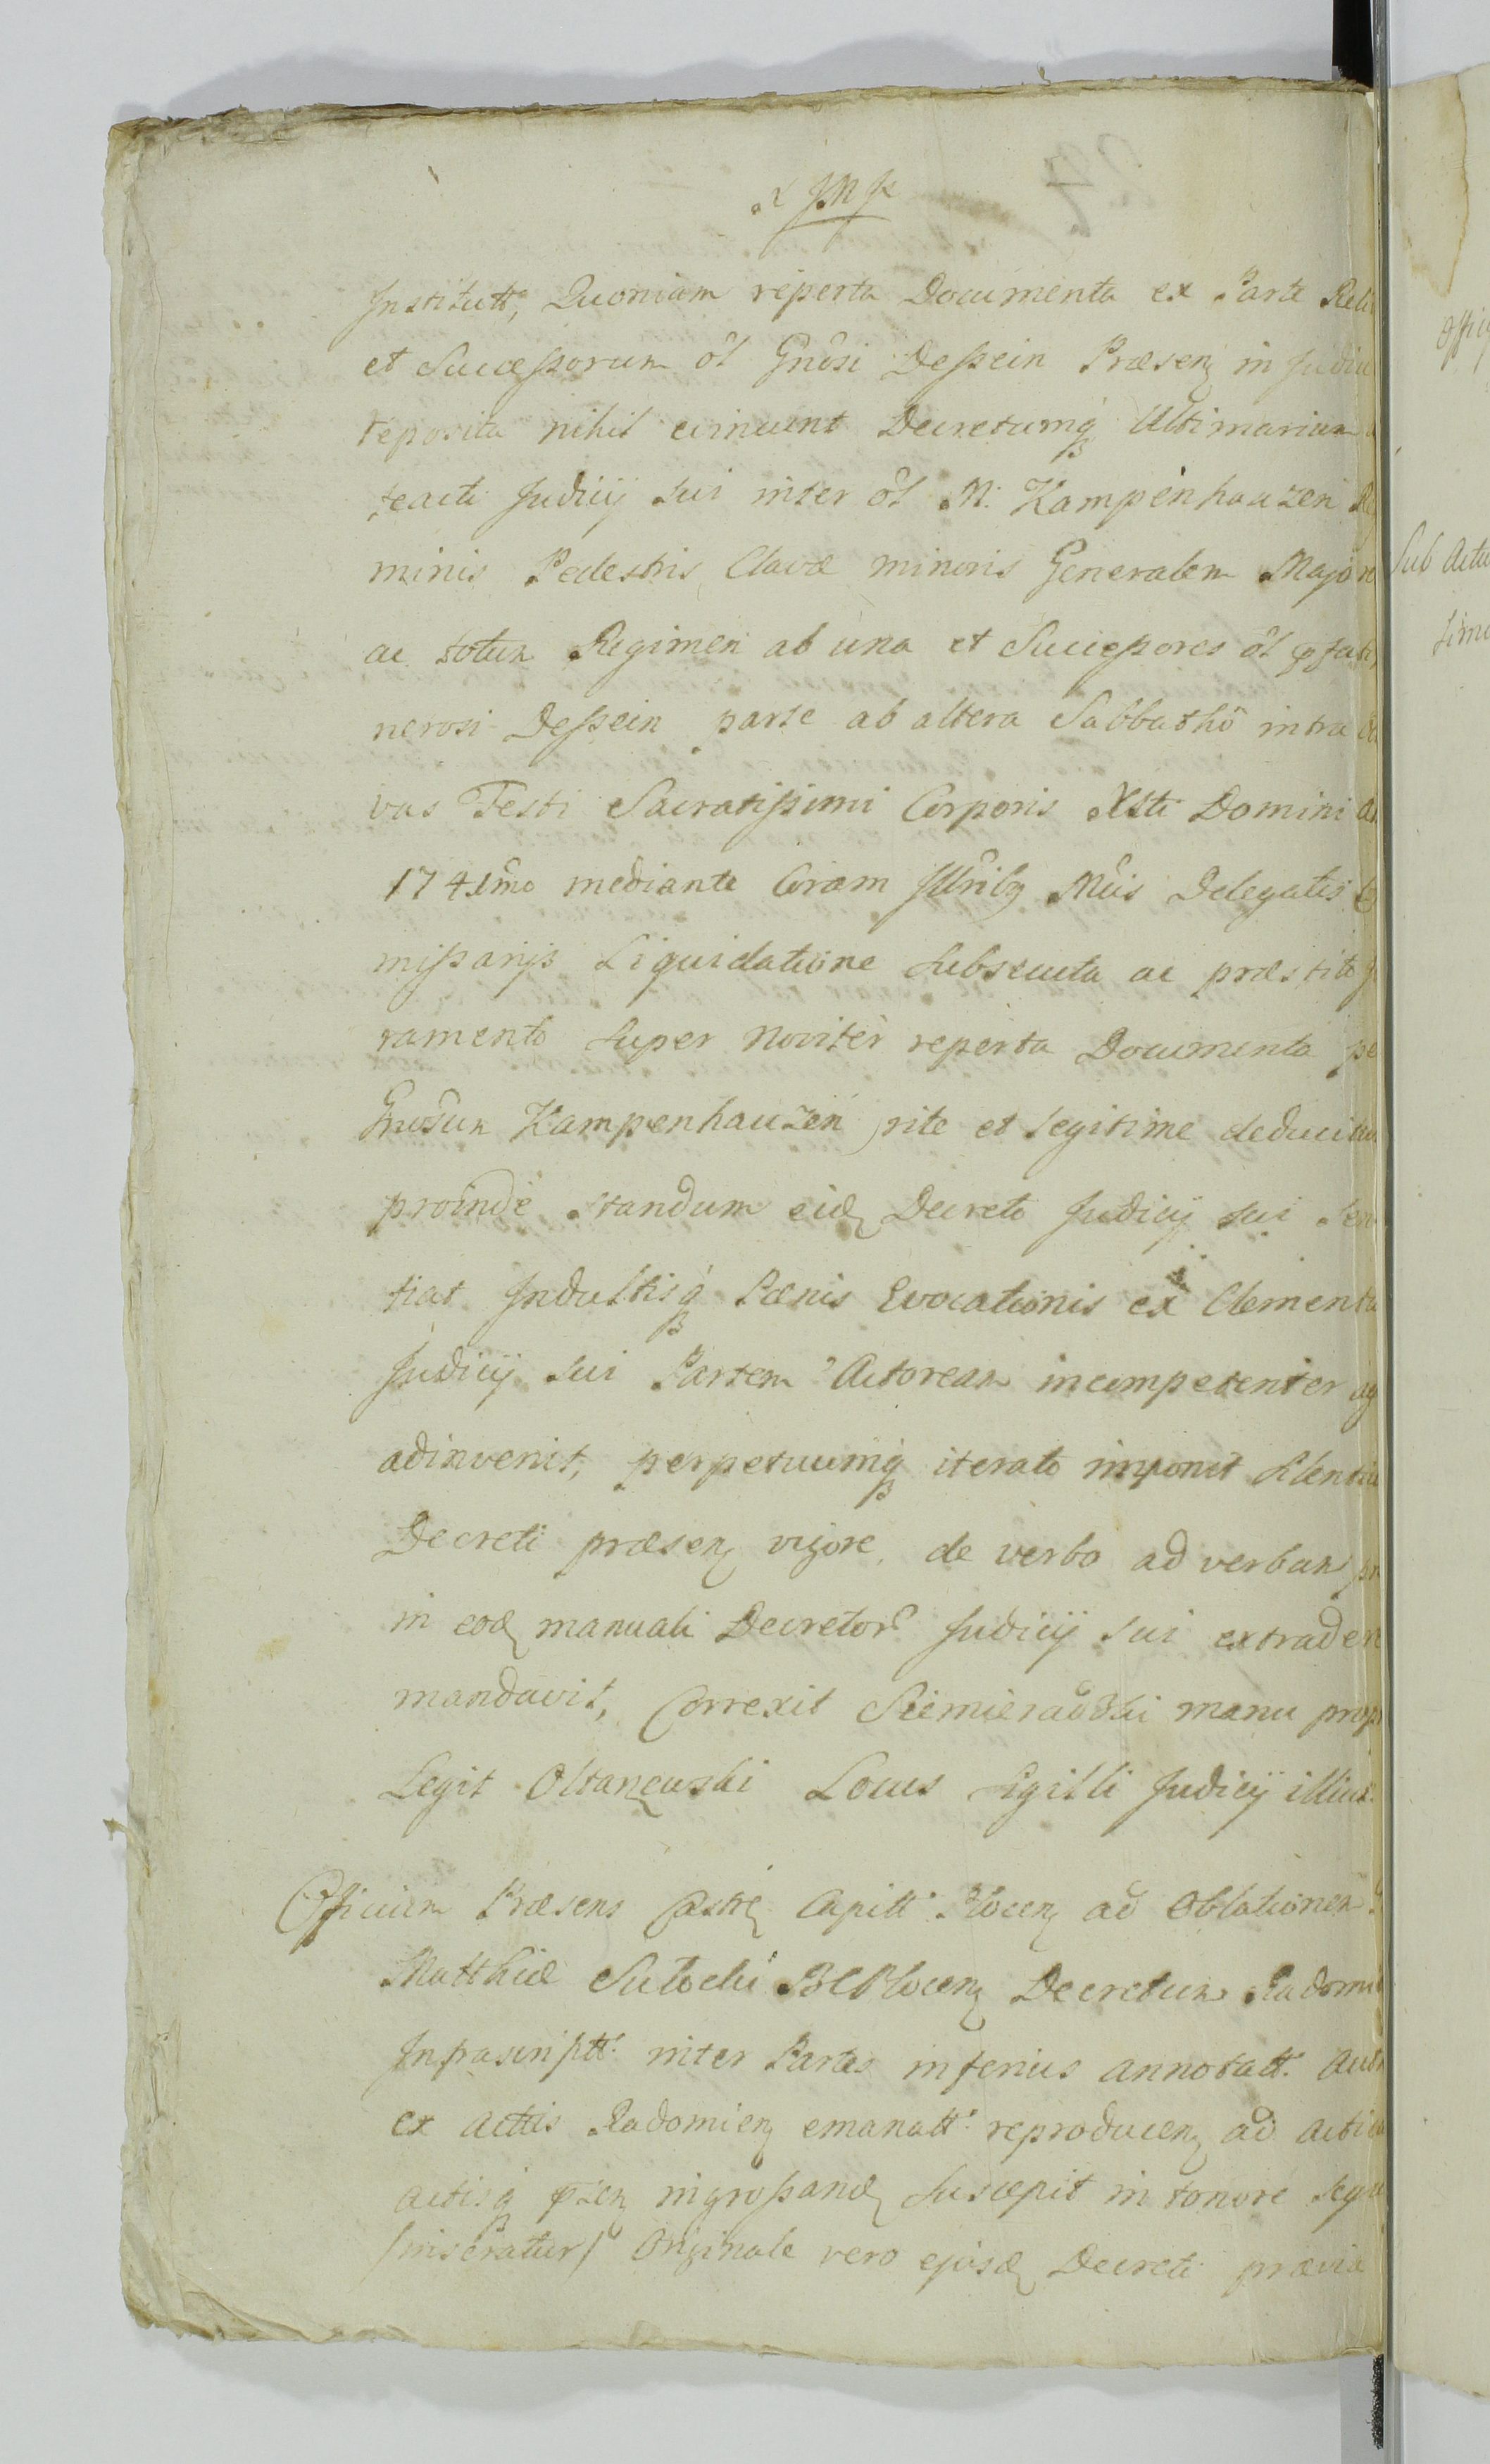 Institutt, Quoniam reperta Documenta ex Parte Reli
et Successorum ol Gnosi Dessein Præsenz in Judiu
reposita nihil evincunt Decretumq Ultimarium
Judicij sui inter ol M. Kampenhauzen Re
minis Pedestris Clavæ minoris Generalem Majore
ac totum Regimen ab una et Successores ol
nerosi Dessein parte ab altera Sabbatho intra
vas Festi Sacratissimi Corporis Xsti Domini A
1741mo mediante Coram Mtis Delegatis Co
missarijs Liquidatione Subsecuta ac præstito Ju
ramento super noviter reperta Documenta pe
Gnosum Kampenhauzen rite et legitime deducitur
proinde standum eid Decreto Judicij sui
tiat Indultisq Pænis Evocationis ex Clementia
Judicij sui Partem Actoream incompetenter ag
adinvenit, perpetuumq iterato imponit silentiu
Decreti præsenz vigore, de verbo ad verbum pr
in eod manuali Decretor Judicij sui extradere
mandavit, Correxit Siemieradzki manu prop
Legit OlTanzewski Locus Sigilli Judicij illius
Officium Præsens Castrz Capitt Plocenz ad Oblationem
Matthiæ Sutocki BCPlocenz Decretum Radomi
Infrascriptt inter Partes inferius annotatt. Auth
ex Acttis Radomienz emanatt reproducenz ad Actic
Actisq ingrossand suscepit in tenore seq
/inseratur/ Originale vero ejusd Decreti prævia
Offi
Sub Actu